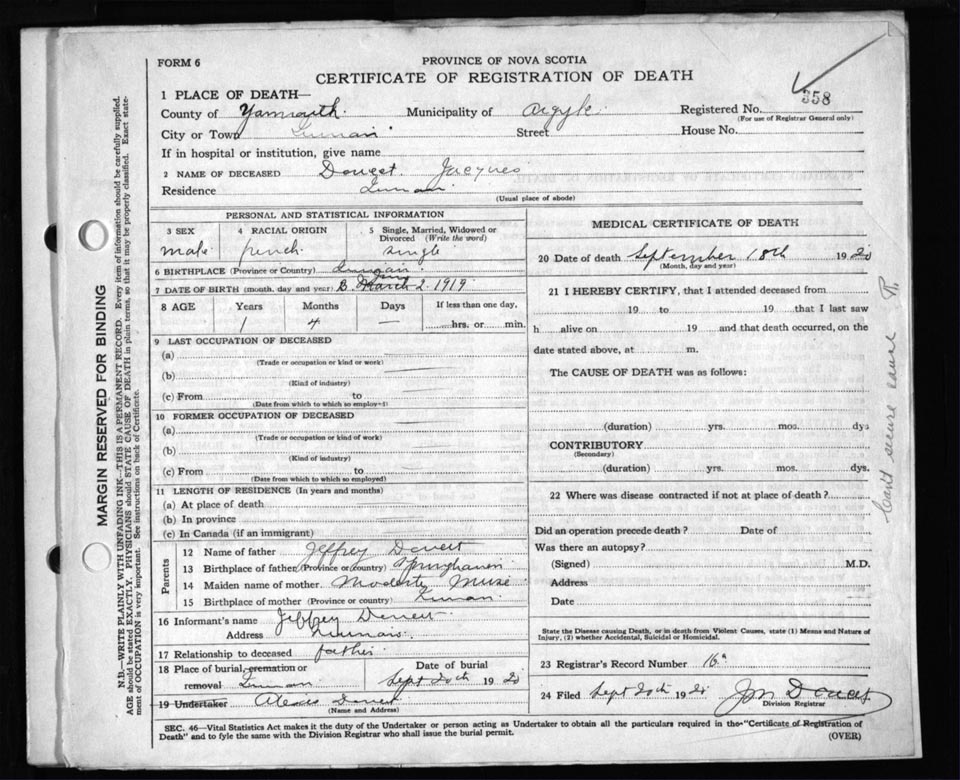 FORM 6
PROVINCE OF NOVA SCOTIA
CERTIFICATE OF REGISTRATION OF DEATH
358
1 PLACE OF DEATH—
County of Yarmouth Municipality of Argyle Registered No.
(For use of Registrar General only)
City or Town Street House No.
If in hospital or institution, give name
2 NAME OF DECEASED Doucet Jacques
Residence
(Usual place of abode)
PERSONAL AND STATISTICAL INFORMATION
3 SEX 4 RACIAL ORIGIN 5 Single, Married, Widowed or Divorced (Write the word)
male french single
6 BIRTHPLACE (Province or Country)
7 DATE OF BIRTH (month, day and year) March 2 1919
8 AGE Years Months Days If less than one day,
1 4 — hrs. or min.
9 LAST OCCUPATION OF DECEASED
(a)
(Trade or occupation or kind of work)
(b)
(Kind of industry)
(c) From to
(Date from which to which so employed)
10 FORMER OCCUPATION OF DECEASED
(a)
(Trade or occupation or kind of work)
(b)
(Kind of industry)
(c) From to
(Date from which to which so employed)
11 LENGTH OF RESIDENCE (In years and months)
(a) At place of death
(b) In province
(c) In Canada (if an immigrant)
Parents
12 Name of father Jeffrey Doucet
13 Birthplace of father (Province or country) Springhaven
14 Maiden name of mother Modeste Muse
15 Birthplace of mother (Province or country)
16 Informant's name Jeffrey Doucet
Address
17 Relationship to deceased father
18 Place of burial, cremation or removal
Date of burial
Sept 20th 1920
19 Undertaker Doucet
(Name and Address)
MEDICAL CERTIFICATE OF DEATH
20 Date of death September 18th 1920
(Month, day and year)
21 I HEREBY CERTIFY, that I attended deceased from
19 to 19 that I last saw
h alive on 19 and that death occurred, on the
date stated above, at m.
The CAUSE OF DEATH was as follows:
(duration) yrs. mos. dys
CONTRIBUTORY
(Secondary)
(duration) yrs. mos. dys.
22 Where was disease contracted if not at place of death?
Did an operation precede death? Date of
Was there an autopsy?
(Signed) M.D.
Address
Date
State the Disease causing Death, or in death from Violent Causes, state (1) Means and Nature of
Injury, (2) whether Accidental, Suicidal or Homicidal.
23 Registrar's Record Number 16
24 Filed Sept 20th 1920 Doucet
Division Registrar
SEC. 46—Vital Statistics Act makes it the duty of the Undertaker or person acting as Undertaker to obtain all the particulars required in the "Certificate of Registration of
Death" and to fyle the same with the Division Registrar who shall issue the burial permit.
(OVER)
MARGIN RESERVED FOR BINDING
N.B.—WRITE PLAINLY WITH UNFADING INK—THIS IS A PERMANENT RECORD. Every item of information should be carefully supplied.
AGE should be stated EXACTLY. PHYSICIANS should STATE CAUSE OF DEATH in plain terms, so that it may be properly classified. Exact state-
ment of OCCUPATION is very important. See instructions on back of Certificate.
Can't secure cause